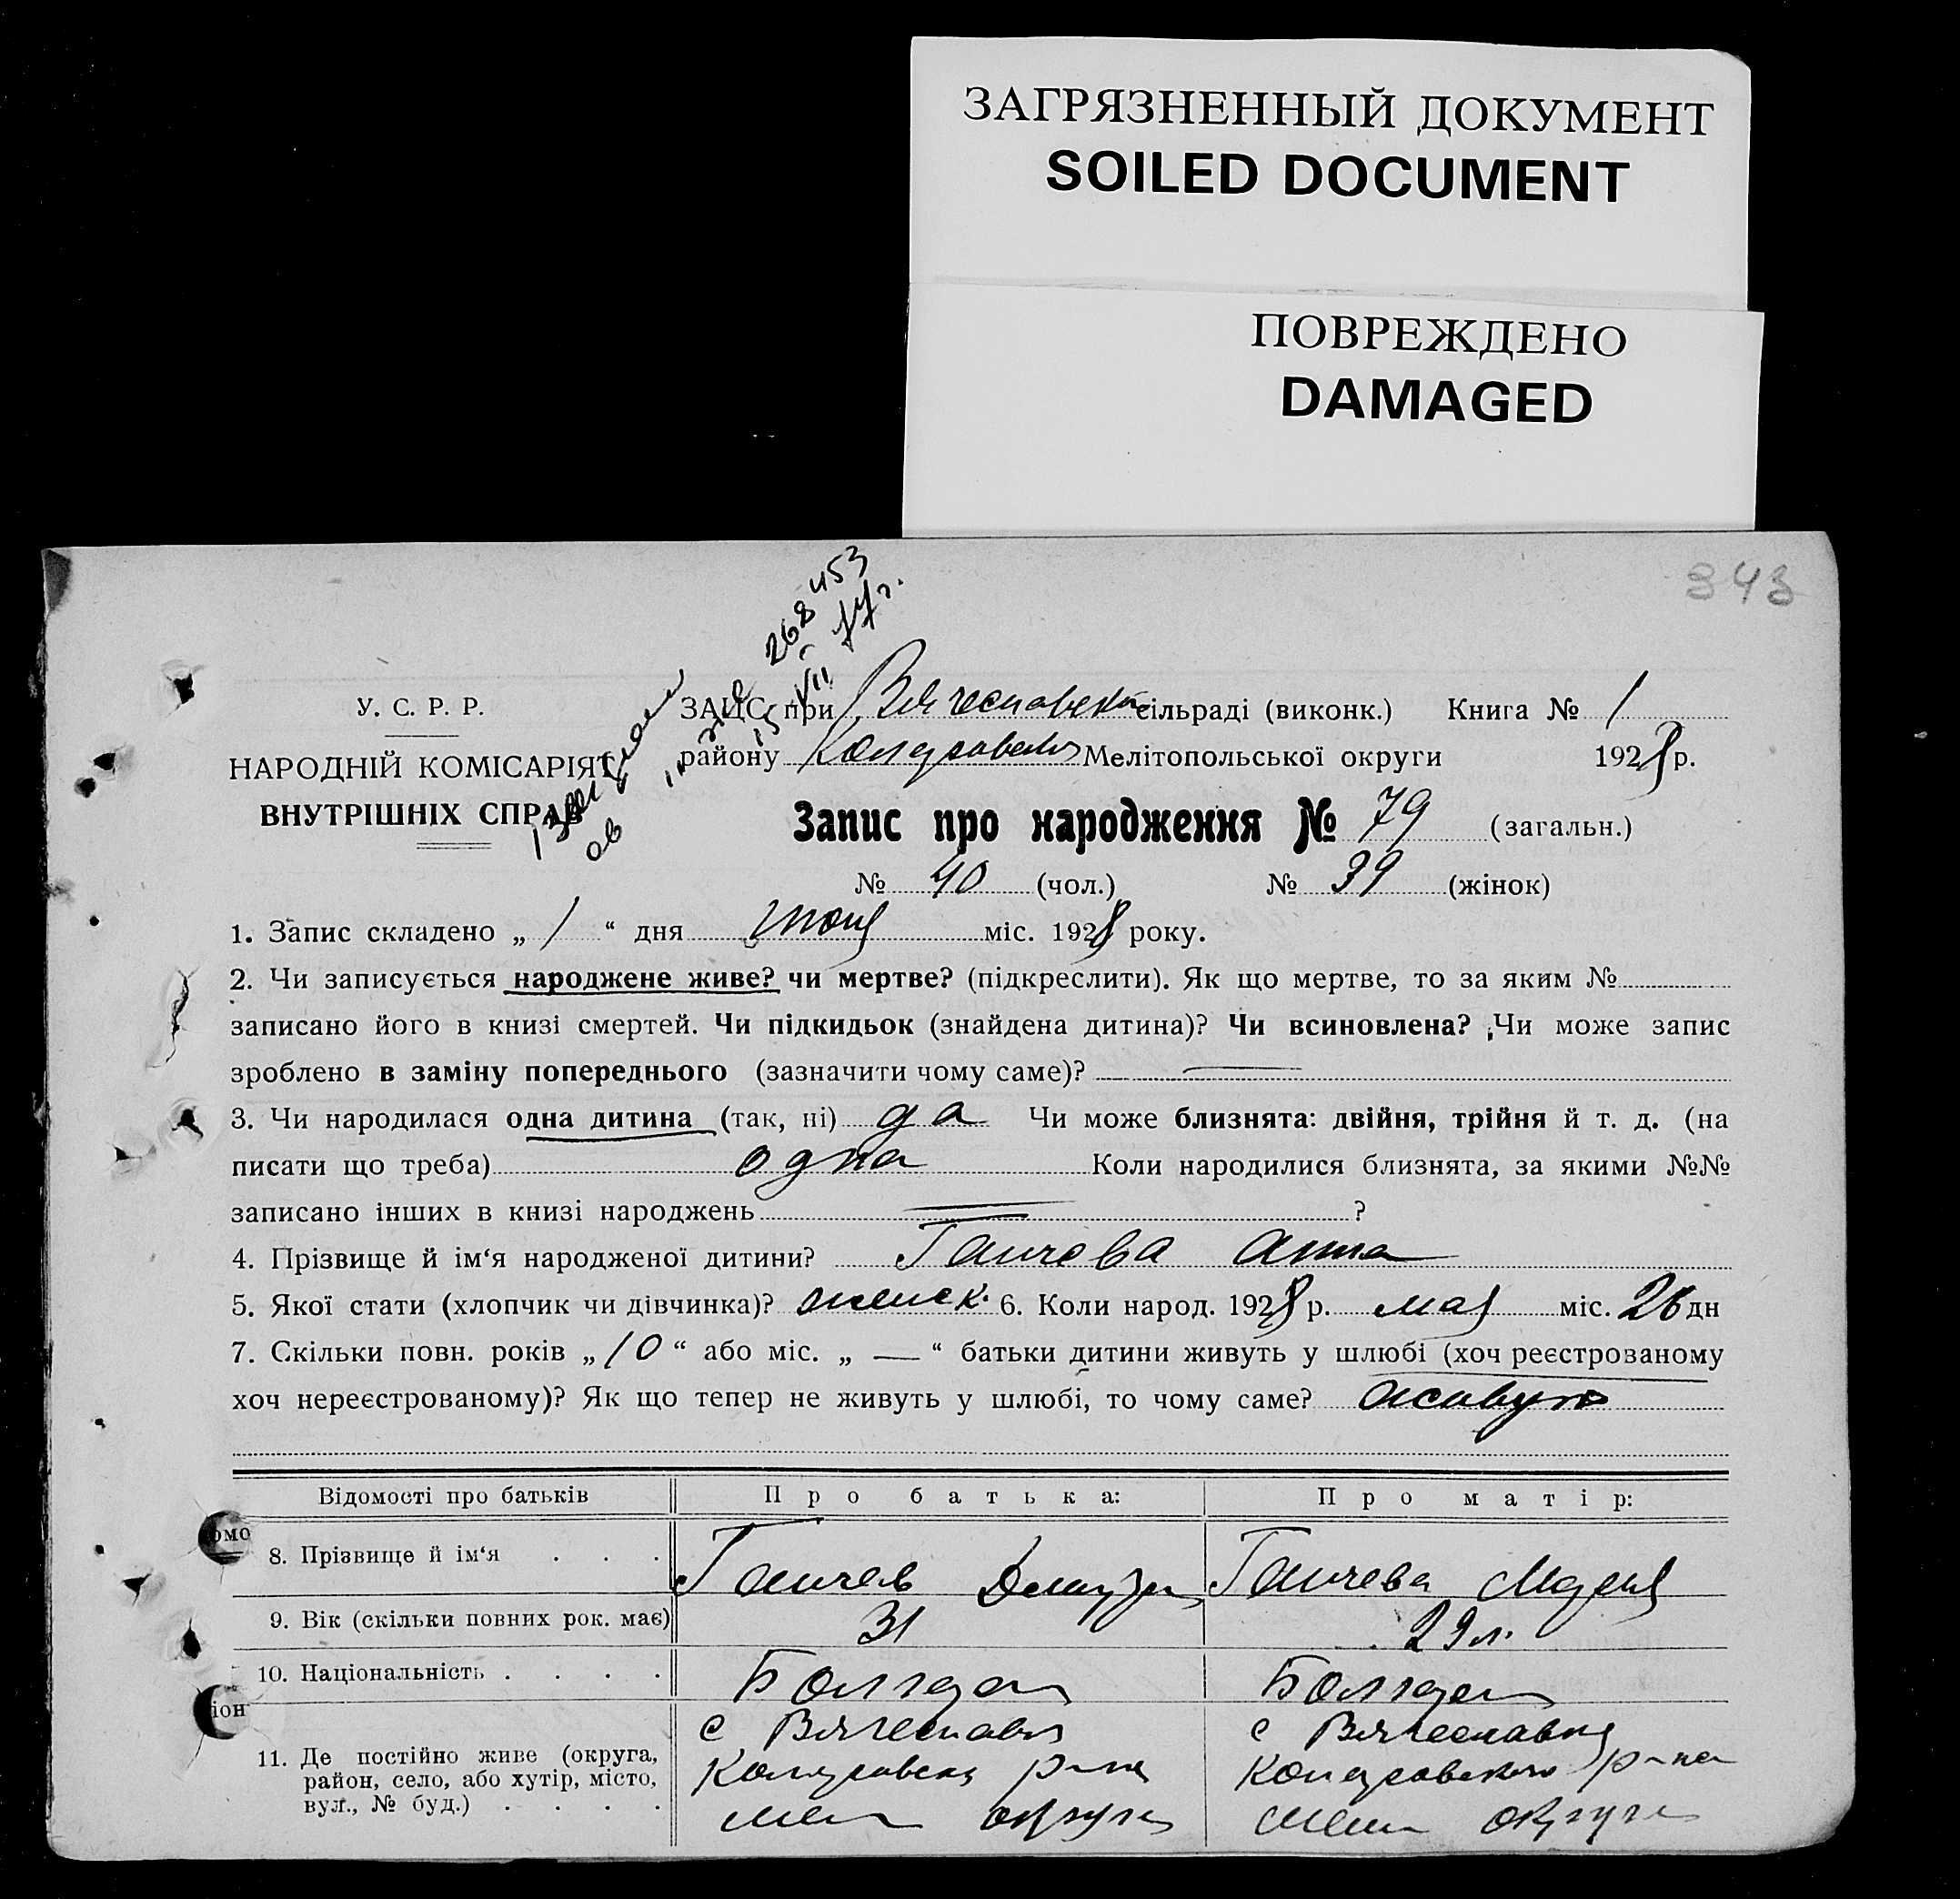 ЗАГРЯЗНЕННЫЙ ДОКУМЕНТ
SOILED DOCUMENT
ПОВРЕЖДЕНО
DAMAGED
343
268453
У. С. Р. Р.
НАРОДНІЙ КОМІСАРІЯТ
ВНУТРІШНІХ СПРАВ
ЗАЦС при сільраді (виконк.) Книга № 1
району Мелітопольської округи 1928 р.
Запис про народження № 79 (загальн.)
№ 40 (чол.) № 39 (жінок)
1. Запис складено „ 1 “ дня міс. 1928 року.
2. Чи записується народжене живе? чи мертве? (підкреслити). Як що мертве, то за яким №
записано його в книзі смертей. Чи підкидьок (знайдена дитина)? Чи всиновлена? Чи може запис
зроблено в заміну попереднього (зазначити чому саме)? —
3. Чи народилася одна дитина (так, ні) да Чи може близнята: двійня, трійня й т. д. (на
писати що треба) одна Коли народилися близнята, за якими №№
записано інших в книзі народжень — ?
4. Прізвище й ім‘я народженої дитини? Ганчева Анна
5. Якої стати (хлопчик чи дівчинка)? женск. 6. Коли народ. 1928 р. мая міс. 26 дн
7. Скільки повн. років „ 10 “ або міс. „ — “ батьки дитини живуть у шлюбі (хоч реєстрованому
хоч нереєстрованому)? Як що тепер не живуть у шлюбі, то чому саме?
Відомості про батьків Про батька: Про матір:
8. Прізвище й ім‘я . . . Ганчев Ганчева Мария
9. Вік (скільки повних рок. має) 31 29 л.
10. Національність . . . . Болгари Болгари
11. Де постійно живе (округа, с Вячеславка с Вячеславка
район, село, або хутір, місто, р-на р-на
вул., № буд.) . . . . Мел округи Мел округи
омо
іон